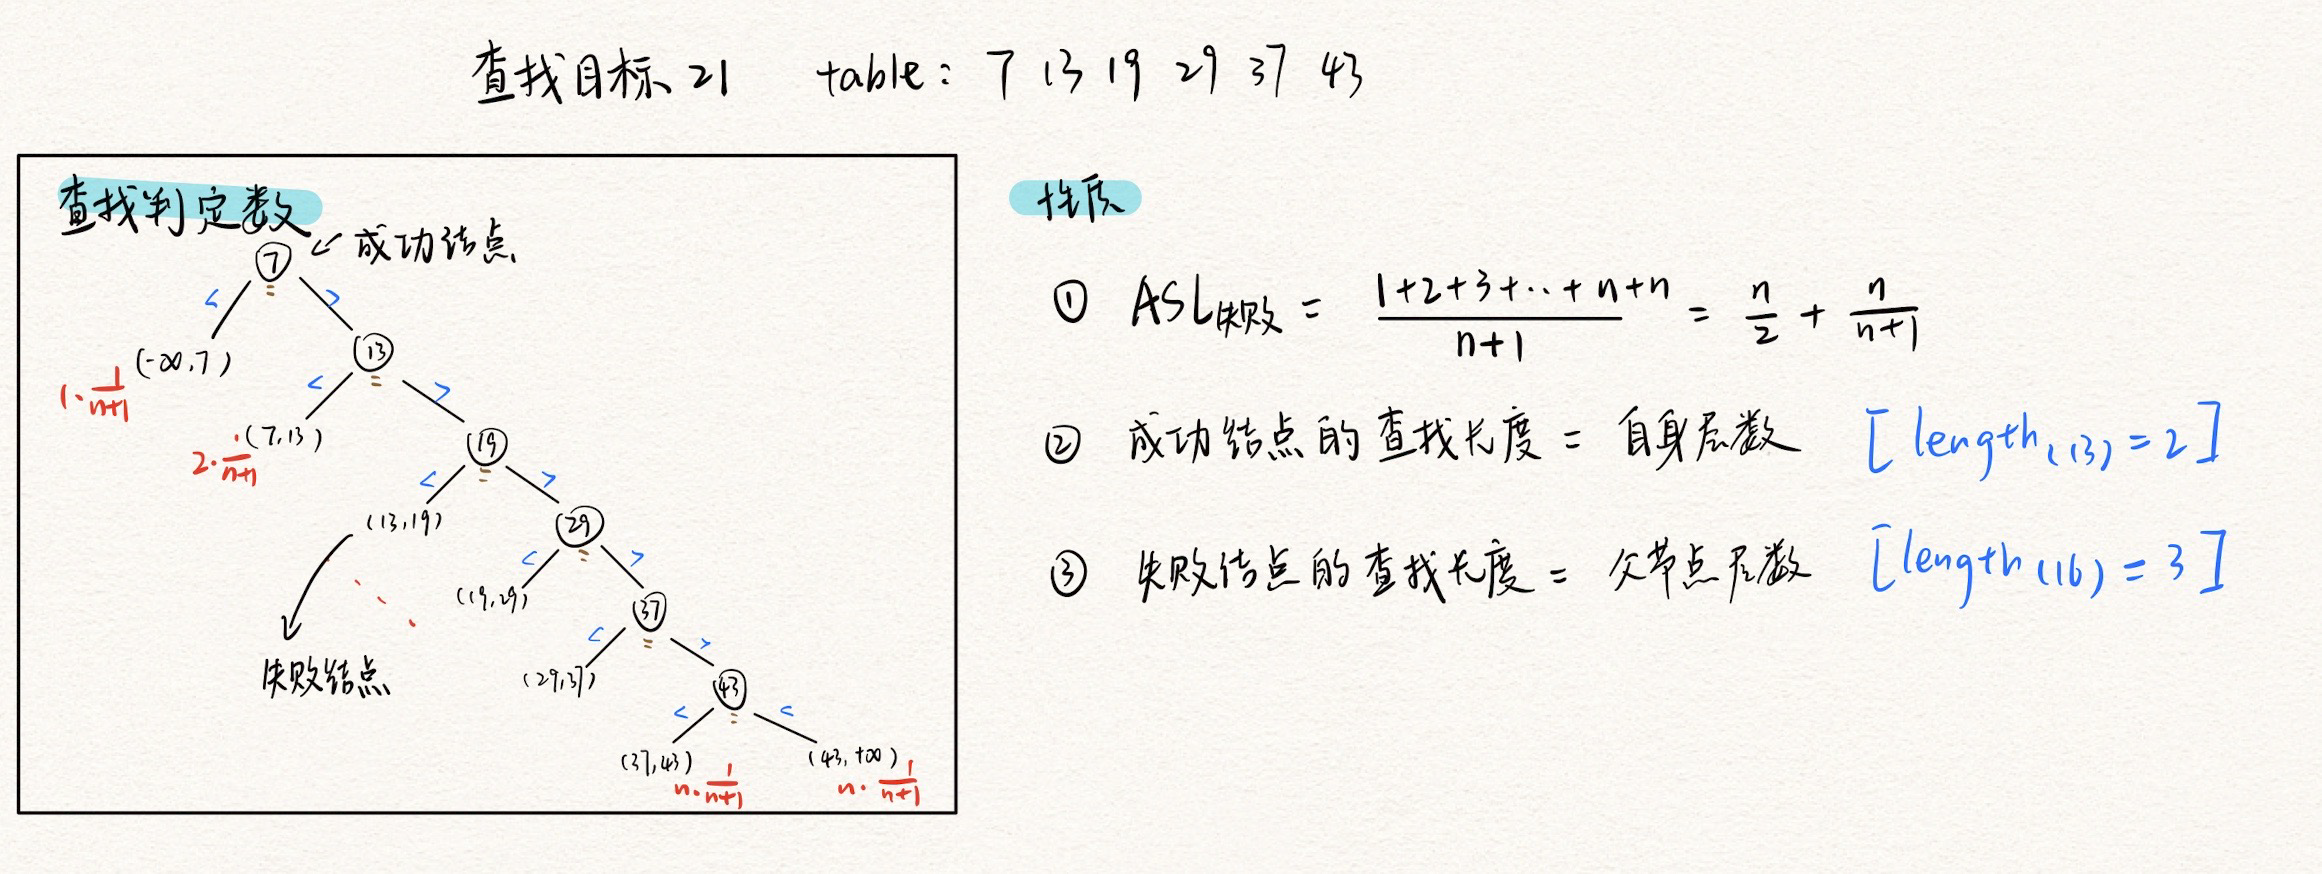 查找目标 21 table: 7 13 19 29 37 43
查找判定数
7 ← 成功结点
< >
(-∞,7) 13
1·1/(n+1) < >
(7,13) 19
2·1/(n+1) < >
(13,19) 29
< >
(19,29) 37
< >
失败结点 (29,37) 43
< <
(37,43) (43,+∞)
n·1/(n+1) n·1/(n+1)
性质
① ASL失败 = (1+2+3+··+n+n)/(n+1) = n/2 + n/(n+1)
② 成功结点的查找长度 = 自身层数 [length(13)=2]
③ 失败结点的查找长度 = 父节点层数 [length(16)=3]